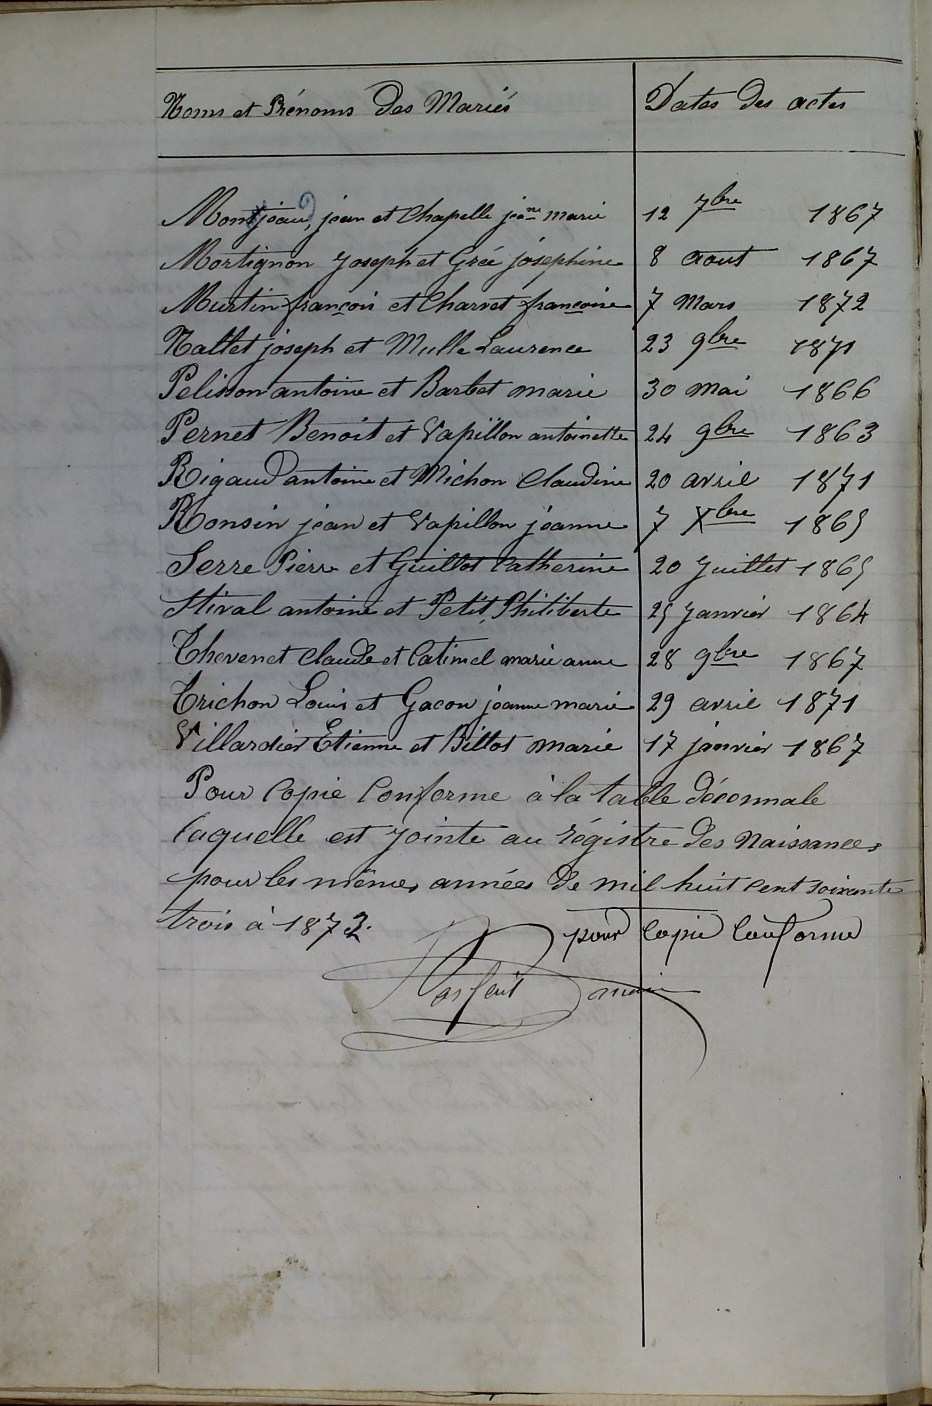 Noms et Prénoms Des Mariés Dates des actes
Montjean, jean et Chapelle jean.ne marie 12 7bre 1867
Mortignon Joseph et Grée joséphine 8 aout 1867
Murtin françois et Charvet francoise 7 Mars 1872
Nallet joseph et Mulle Laurence 23 9bre 1871
Pelisson antoine et Barbet marie 30 mai 1866
Pernet Benoit et Vapillon antoinette 24 9bre 1863
Rigaud antoine et Michon Claudine 20 avril 1871
Ronsin jean et Vapillon jeanne 7 Xbre 1865
Serre Pierre et Guillot Catherine 20 Juillet 1865
Stival antoine et Petit, Philiberte 25 Janvier 1864
Thevenet claude et Catimel marie anne 28 9bre 1867
Trichon Louis et Gacon jeanne marie 29 avril 1871
Villardier Etienne et Billot marie 17 janvier 1867
Pour Copie Conforme à la table décennale
laquelle est jointe au régistre des Naissances
pour les mêmes années de mil huit cent soixante
trois à 1872.
pour Copie Conforme
Parfait maire